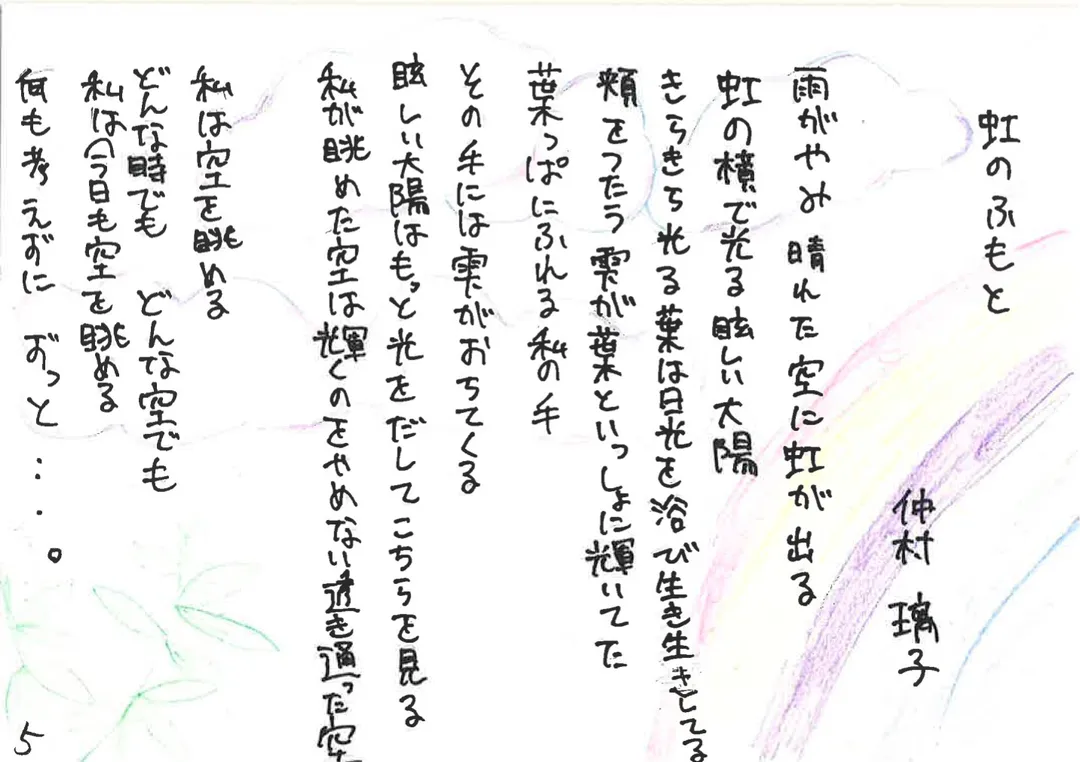 虹のふもと
仲村 璃子
雨がやみ 晴れた空に虹が出る
虹の横で光る眩しい太陽
きらきら光る葉は日光を浴び生き生きしてる
頬をつたう雫が葉といっしょに輝いてた
葉っぱにふれる私の手
その手には雫がおちてくる
眩しい太陽はもっと光をだしてこちらを見る
私が眺めた空は輝くのをやめない透き通った空
私は空を眺める
どんな時でも どんな空でも
私は今日も空を眺める
何も考えずに ずっと...。
5